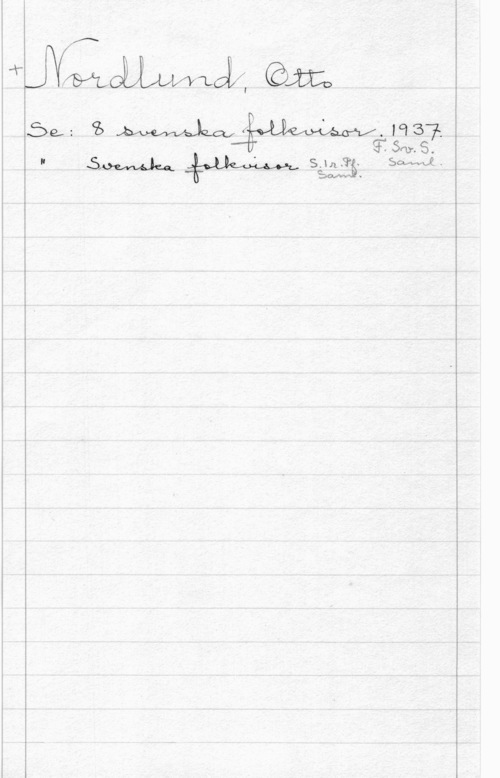 + Nordlund, Otto
Se: 8 svenska folkvisor. 1937.
F. Sv. S. Saml.
" Svenska folkvisor S. 1 r. Pf. Saml.